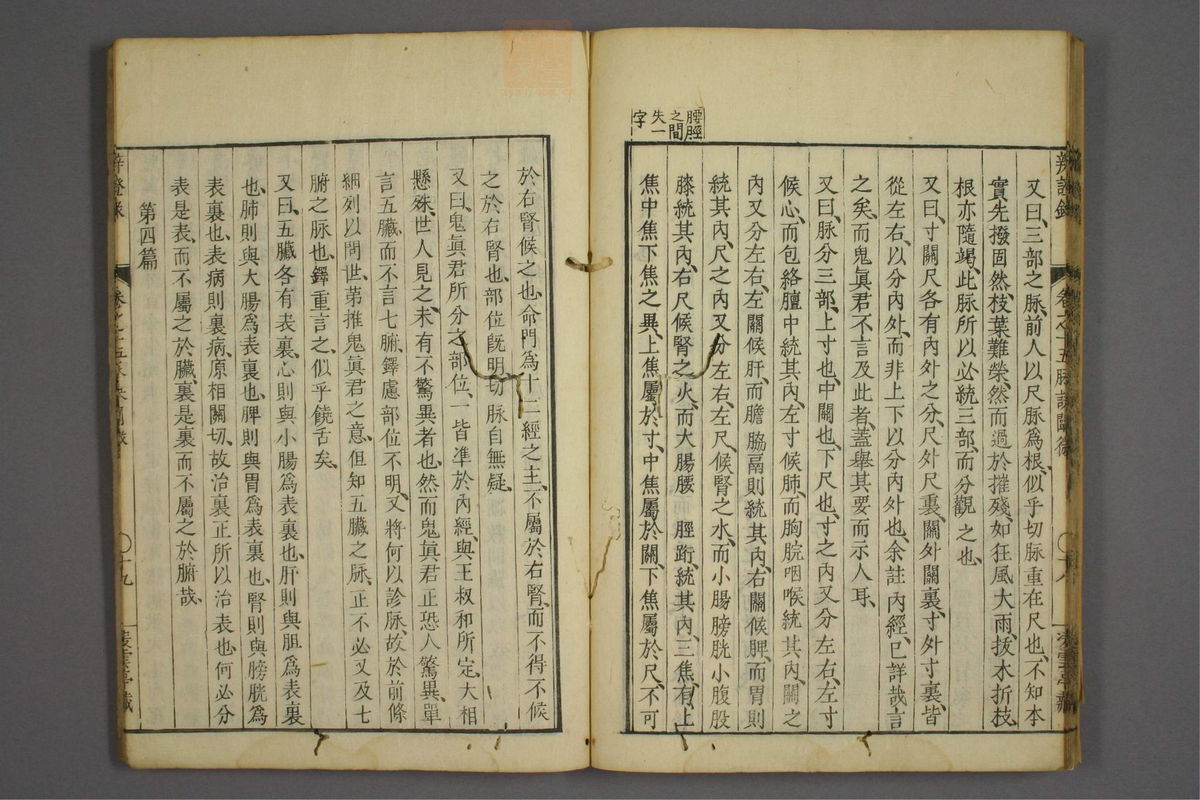 又曰、三部之脉、前人以尺脉爲根、似乎切脉重在尺也、不知本
實先撥、固然枝葉難榮、然而過於摧殘、如狂風大雨、拔木折枝、
根亦隨竭、此脉所以必統三部、而分觀之也、
又曰、寸關尺各有內外之分、尺外尺裏、關外關裏、寸外寸裏、皆
從左右、以分內外、而非上下以分內外也、余註內經、已詳哉言
之矣、而鬼眞君不言及此者、蓋舉其要而示人耳、
又曰、脉分三部、上寸也、中關也、下尺也、寸之內又分左右、左寸
候心、而包絡膻中統其內、左寸候肺、而胸脘咽喉統其內、關之
內又分左右、左關候肝、而膽脇鬲則統其內、右關候脾、而胃則
統其內、尺之內又分左右、左尺候腎之水、而小腸膀胱小腹股
膝統其內、右尺候腎之火、而大腸腰 脛䯒、統其內、三焦有上
焦中焦下焦之異、上焦屬於寸、中焦屬於關、下焦屬於尺、不可
腰脛
之間
失一
字
於右腎候之也、命門爲十二經之主、不屬於右腎、而不得不候
之於右腎也、部位既明、切脉自無疑、
又曰、鬼眞君所分之部位、一皆準於內經、與王叔和所定、大相
懸殊、世人見之、未有不驚異者也、然而鬼眞君正恐人驚異、單
言五臟、而不言七腑、鐸慮部位不明、又將何以診脉、故於前條
細列以問世、第推鬼眞君之意、但知五臟之脉、正不必又及七
腑之脉也、鐸重言之、似乎饒舌矣、
又曰、五臟各有表裏、心則與小腸爲表裏也、肝則與胆爲表裏
也、肺則與大腸爲表裏也、脾則與胃爲表裏也、腎則與膀胱爲
表裏也、表病則裏病、原相關切、故治裏正所以治表也、何必分
表是表、而不屬之於臟、裏是裏、而不屬之於腑哉、
第四篇
十九